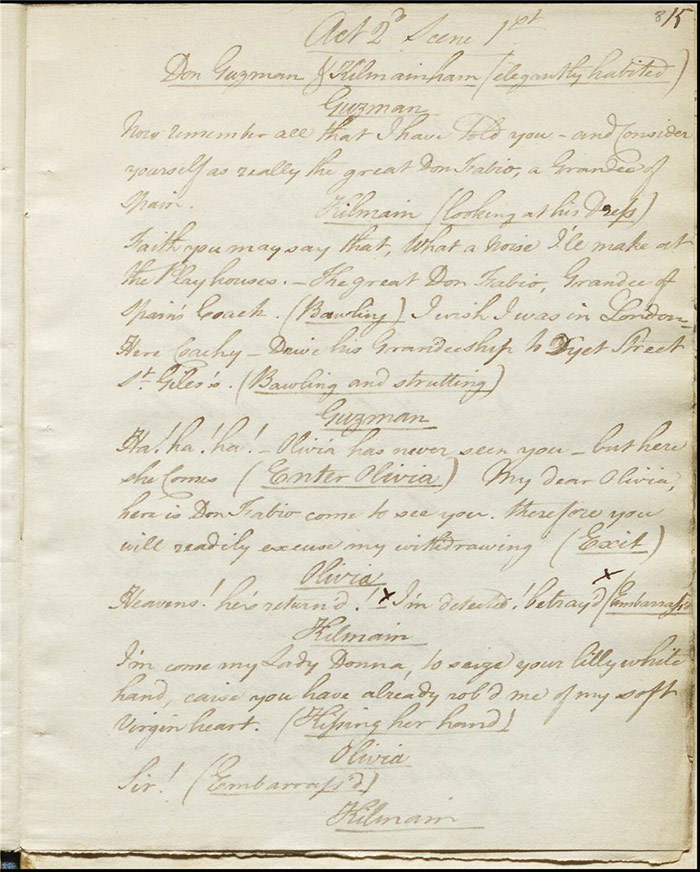 8 15
Act 2d Scene 1st
Don Guzman & Kilmainham (elegantly habited)
Guzman
Now remember all that I have told you – and Consider
yourself as really the great Don Fabio, a Grandee of
Spain. Kilmain (looking at his Dress)
Faith you may say that, What a Noise I'll make at
the Playhouses. – The great Don Fabio, Grandee of
Spain's Coach. (Bawling) I wish I was in London –
Here Coachy – Drive his Grandeeship to Dyet Street
St. Giles's. (Bawling and strutting)
Guzman
Ha! ha! ha! – Olivia has never seen you – but here
she Comes (Enter Olivia) My dear Olivia,
here is Don Fabio come to see you. therefore you
will readily excuse my withdrawing (Exit)
Olivia
Heavens! he's return'd! x I'm detected! betray'd x (Embarrass'd
Kilmain
I'm come my Lady Donna, to seize your lilly white
hand, caise you have already rob'd me of my soft
Virgin heart. (Kissing her hand)
Olivia
Sir! (Embarrass'd)
Kilmain